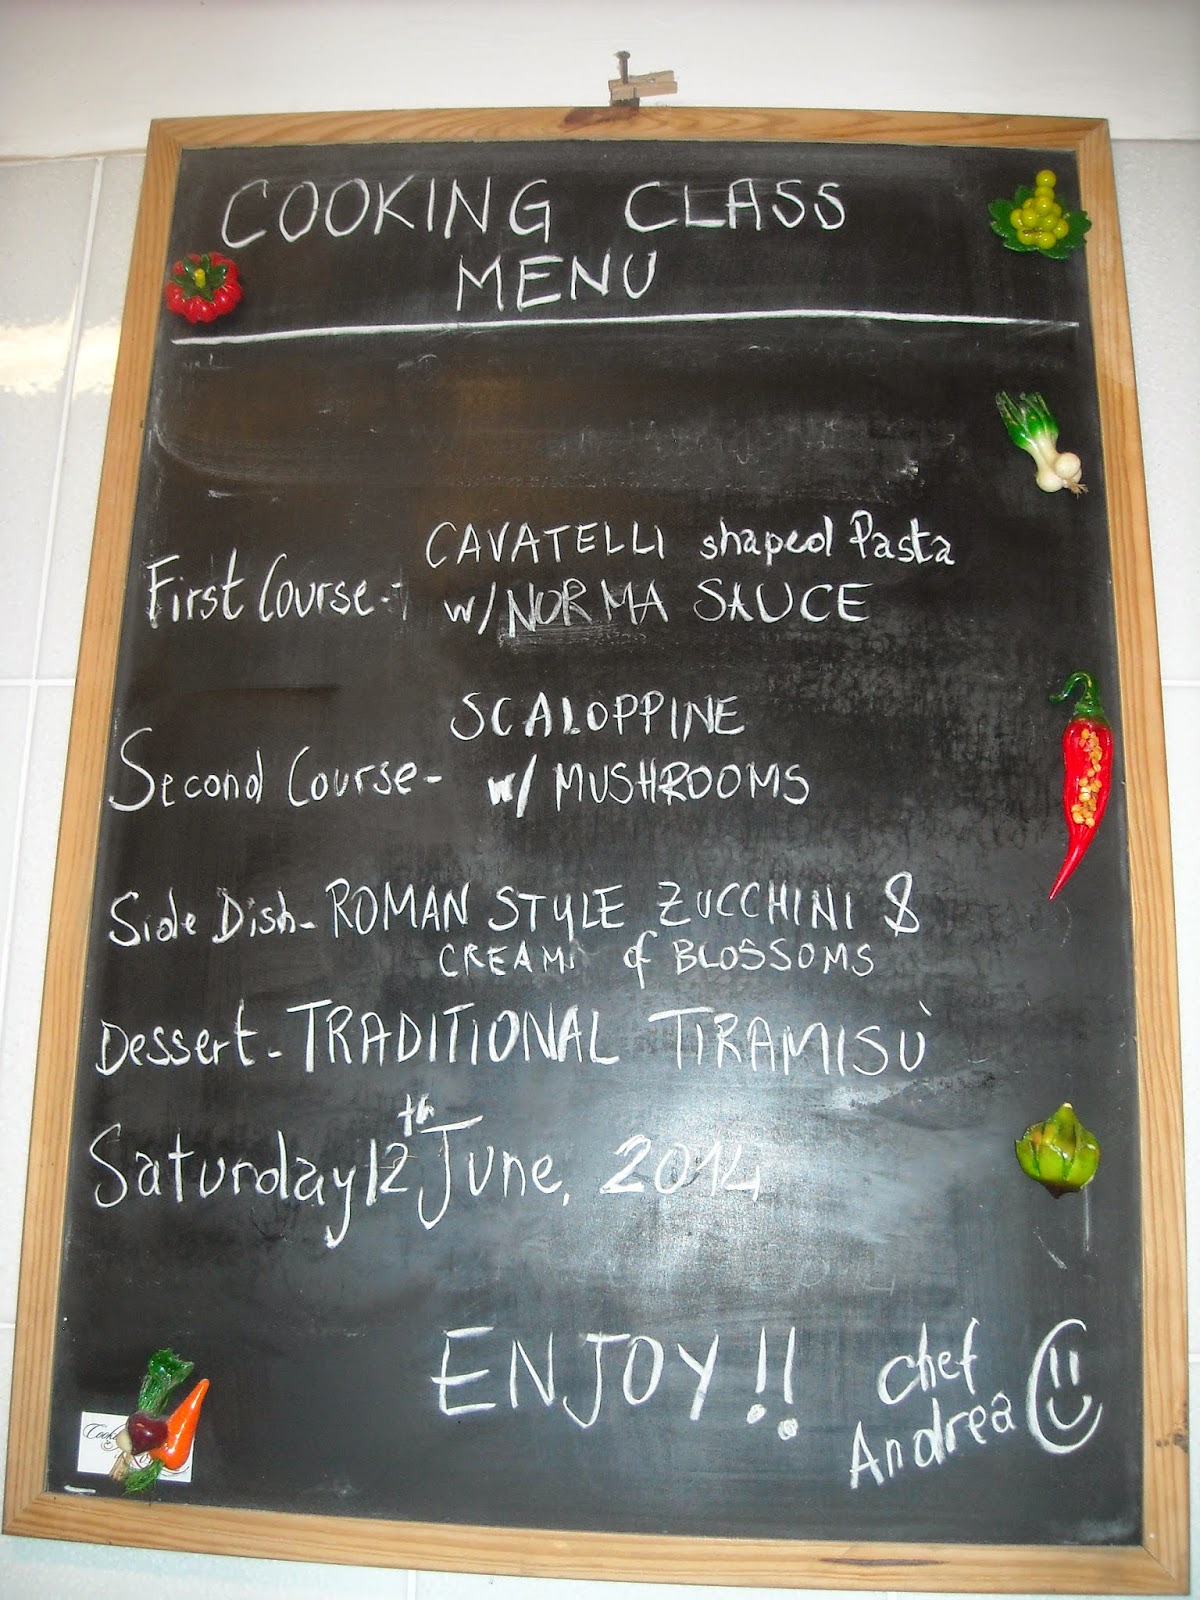 COOKING CLASS
MENU
First Course - CAVATELLI shaped Pasta
w/ NORMA SAUCE
Second Course - SCALOPPINE
w/ MUSHROOMS
Side Dish - ROMAN STYLE ZUCCHINI &
CREAM of BLOSSOMS
Dessert - TRADITIONAL TIRAMISÙ
Saturday 12th June, 2014
ENJOY!! Chef
Andrea